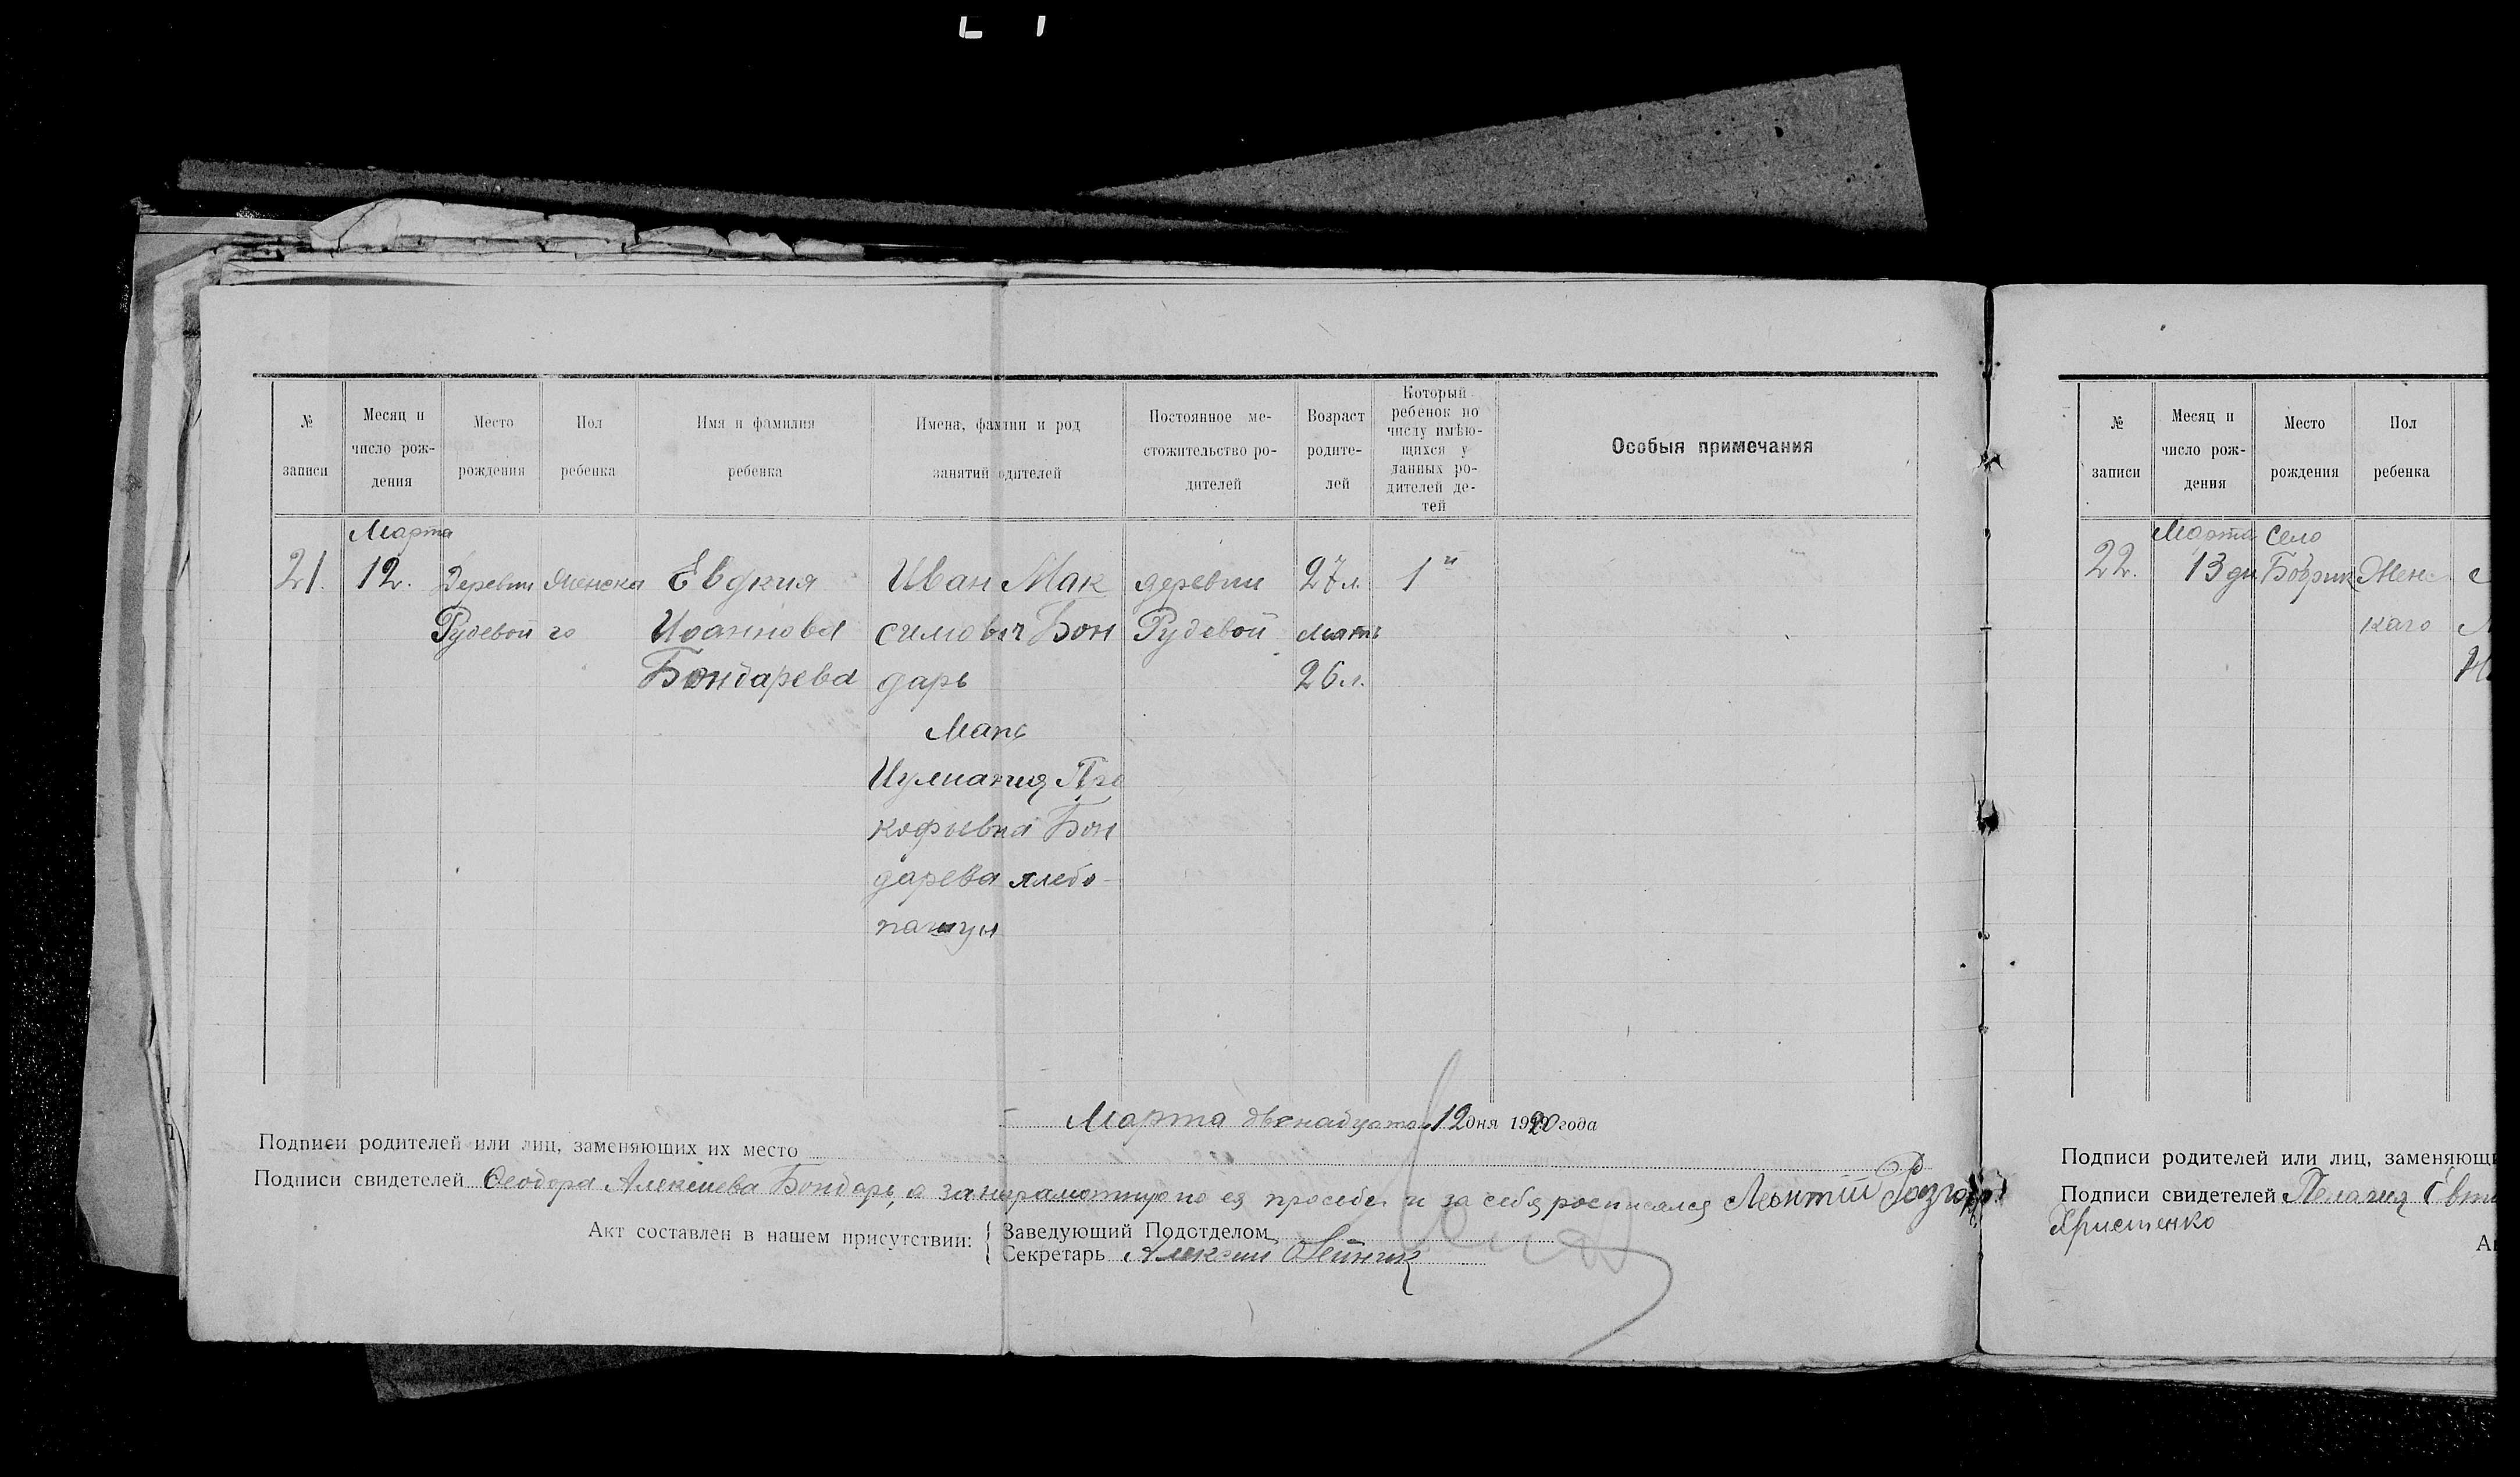 № записи
Месяц и число рождения
Место рождения
Пол ребенка
Имя и фамилия ребенка
Имена, фамлии и род занятий одителей
Постоянное ме-
стожительство ро-
дителей
Возраст
родите-
лей
Который
ребенок по
числу имѣю-
щихся у
данных ро-
дителей де-
тей
Особыя примечания
Марта
21. 12. Деревни Женска Евдкия Иван Мак деревни 27 л. 1й
Рудевой го Иоаннова симович Бон Рудевой мать
Бондарева дарь 26 л.
Мать
Иулиания Про
кофьевна Бон
дарева хлебо-
пашцы
Марта двенадцатаго 12 дня 1920 года
Подписи родителей или лиц, заменяющих их место
Подписи свидетелей Феодора Алексиева Бондарь, а за неграмотную по ея просьбе и за себя росписался Леонтий
Акт составлен в нашем присутствии: Заведующий Подотделом
Секретарь Алексий Олейник
№ записи
Месяц и
число рож-
дения
Место
рождения
Пол
ребенка
Марта село
22. 13 дн Бобрик Женс
каго
Подписи родителей или лиц, заменяющи
Подписи свидетелей Пелагия
Христенко